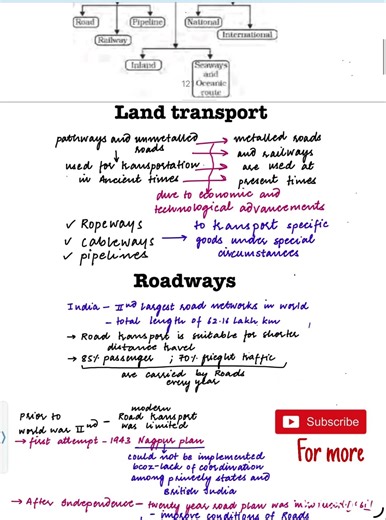 Road
Pipeline
National
Railway
International
Inland
Seaways
and
Oceanic
route
12
Land transport
pathways and unmetalled → metalled roads
roads → and railways
used for transportation → are used at
in Ancient times → present times
due to economic and
technological advancements
✓ Ropeways
✓ cableways
✓ pipelines
→ to transport specific
goods under special
circumstances
Roadways
India - IInd largest road networks in world
- total length of 62.16 Lakh km
→ Road transport is suitable for shorter
distance travel
→ 85% passenger ; 70% frieght traffic
are carried by Roads
every year
Prior to
world war IInd - modern
Road transport
was limited
→ first attempt - 1943 Nagpur plan
could not be implemented
bcoz - lack of coordination
among princely states and
British India
Subscribe
For more
→ After Independence - twenty year road plan was
- improve conditions of Roads